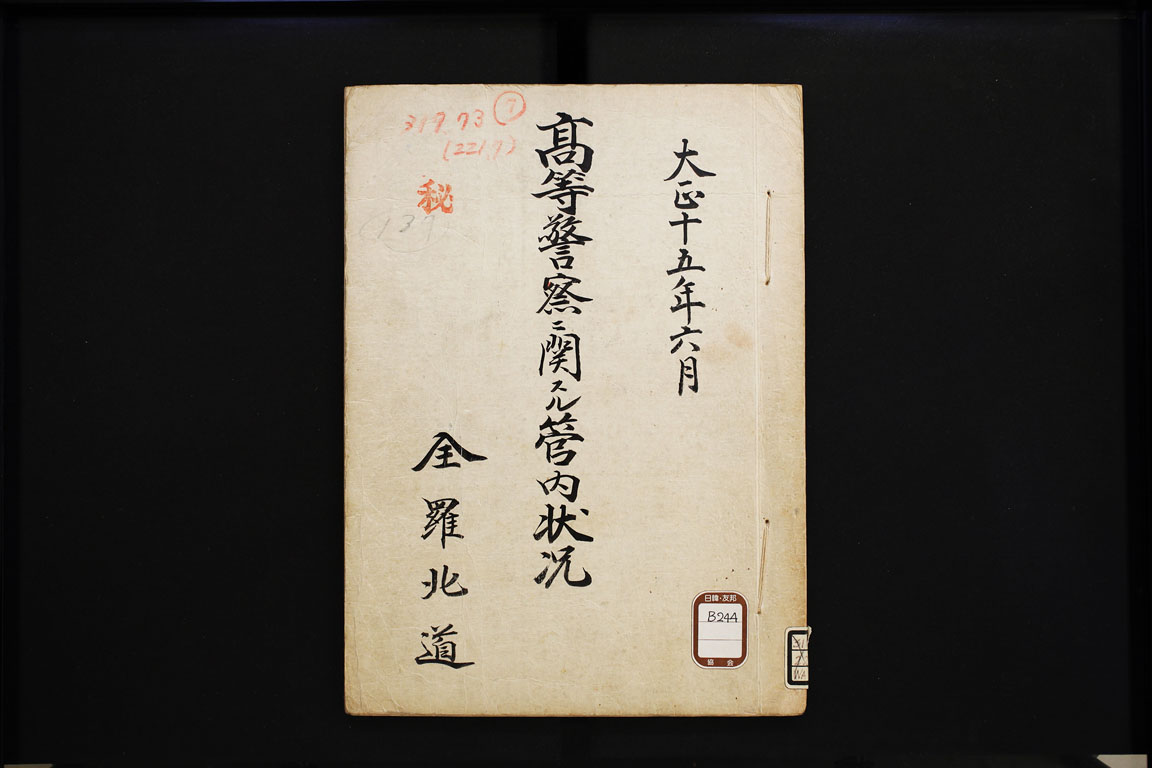 大正十五年六月
高等警察ニ関スル管内状況
全羅北道
319.73 ⑦
(221.7)
秘
日韓・友邦
B244
協会